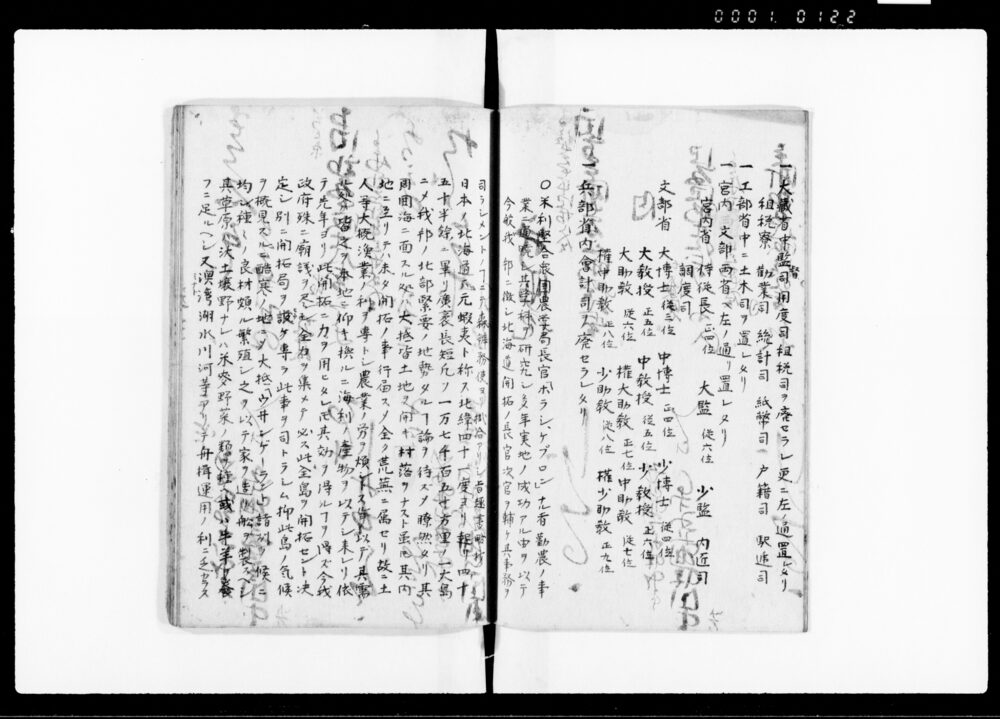 0001 0122
一大蔵省中監司用度司租税司ヲ廃セラレ更ニ左ノ通置レタリ
租税寮 勧業司 統計司 紙幣司 戸籍司 駅逓司
一工部省中ニ土木司ヲ置レタリ
一宮内 文部両省ヘ左ノ通リ置レタリ
宮内省 侍従長 正四位 大監 従六位 少監 内匠司
調度司
文部省 大博士 従三位 中博士 正四位 少博士 従四位
大教授 正五位 中教授 従五位 少教授 正六位
大助教 従六位 権大助教 正七位 中助教 従七位
権中助教 正八位 少助教 従八位 権少助教 正九位
一兵部省内会計司ヲ廃セラレタリ
〇米利堅合衆国農業局長官ホラシ、ケプロンレナル者勧農ノ事
業ニ 研究シ多年実地ノ成功アル由ヲ以テ
今般我 邦ニ徴シ北海道開拓ノ長官次官ヲ輔ケ其事務ヲ
司ラシメント
日本ノ北海道ハ元蝦夷ト称ス北緯四十一度ヨリ起リ四十
五十半餘ニ畢リ廣袤長短凡ソ一万七千百五十方里ノ一大島
ニメ我邦ノ北部緊要ノ地勢タルヿ論ヲ待ズメ瞭然タリ其
周囲海ニ面スル処ハ大抵皆土地ヲ開キ村落ヲナスト虽モ其内
地ニ至リテハ未タ開拓ノ事行届ス全ク荒蕪ニ属セリ故ニ土
人等大概漁業ノ利ヲ専トシ農業ノ労ヲ煩トス是ヲ以テ其需
皆之ヲ本地ニ仰キ換ルニ海利ノ産物ヲ以テシ来レリ依
テ先年ヨリ此開拓ニ力ヲ用ヒタレ𪜈其効ヲ得ルヿヲ得ズ今我
政府殊ニ廟議ヲ尽シ全力ヲ集メテ必ス此全島ヲ開拓セント決
定シ別ニ開拓局ヲ設ケ専ラ此事ヲ司トラシム抑此島ノ気候
ヲ概見スルニ酷寒ノ地ニアラス大抵 諸州ノ候ニ
均シ種々ノ良材頗ル繁殖シ之ヲ以テ家ヲ造リ船ヲ製スヘシ
其草原ハ沃土壌野ナレハ米麥野菜ノ類ヲ種ヘ或ハ牛羊ヲ養
フニ足ルヘシ又湾湖水川河等アリテ舟楫運用ノ利ニ乏カラス